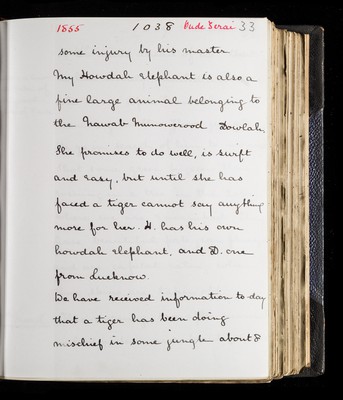 1855 1038 Pude Serai 33
some injury by his master
My Howdah Elephant is also a
fine large animal belonging to
the Nawab Munowerood Dowlah.
She promises to do well, is swift
and easy, but until she has
faced a tiger cannot say anything
more for her. H. has his own
howdah elephant, and D. one
from Lucknow.
We have received information to-day
that a tiger has been doing
mischief in some jungle about 8